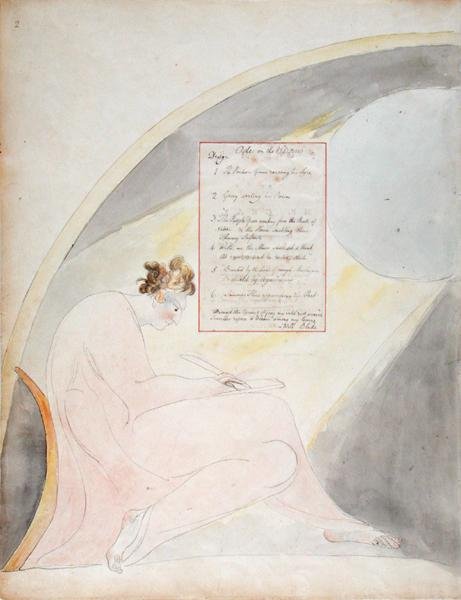 2
Ode on the Spring
Design
1 The Pindaric Genius recieving his Lyre
2 Gray writing his Poems
3 The Purple Year awaking from the Roots of
Nature & The Hours suckling their
Flowery Infants
4 With me the Muse shall sit & think
At ease reclin'd in rustic state
5 Brush'd by the hand of rough Mischance
Or chill'd by Age
6 Summer Flies reproaching the Poet
Around the Springs of Gray my wild root weaves
Traveller repose & Dream among my leaves
Will. Blake